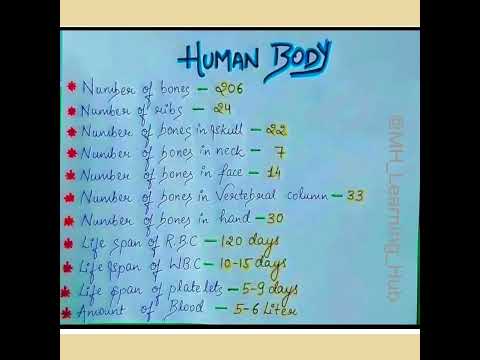 HUMAN BODY
Number of bones – 206
Number of ribs – 24
Number of bones in skull – 22
Number of bones in neck – 7
Number of bones in face – 14
Number of bones in Vertebral column – 33
Number of bones in hand – 30
Life span of R.B.C – 120 days
Life span of W.B.C – 10-15 days
Life span of platelets – 5-9 days
Amount of Blood – 5-6 Liter
@MH_Learning_Hub